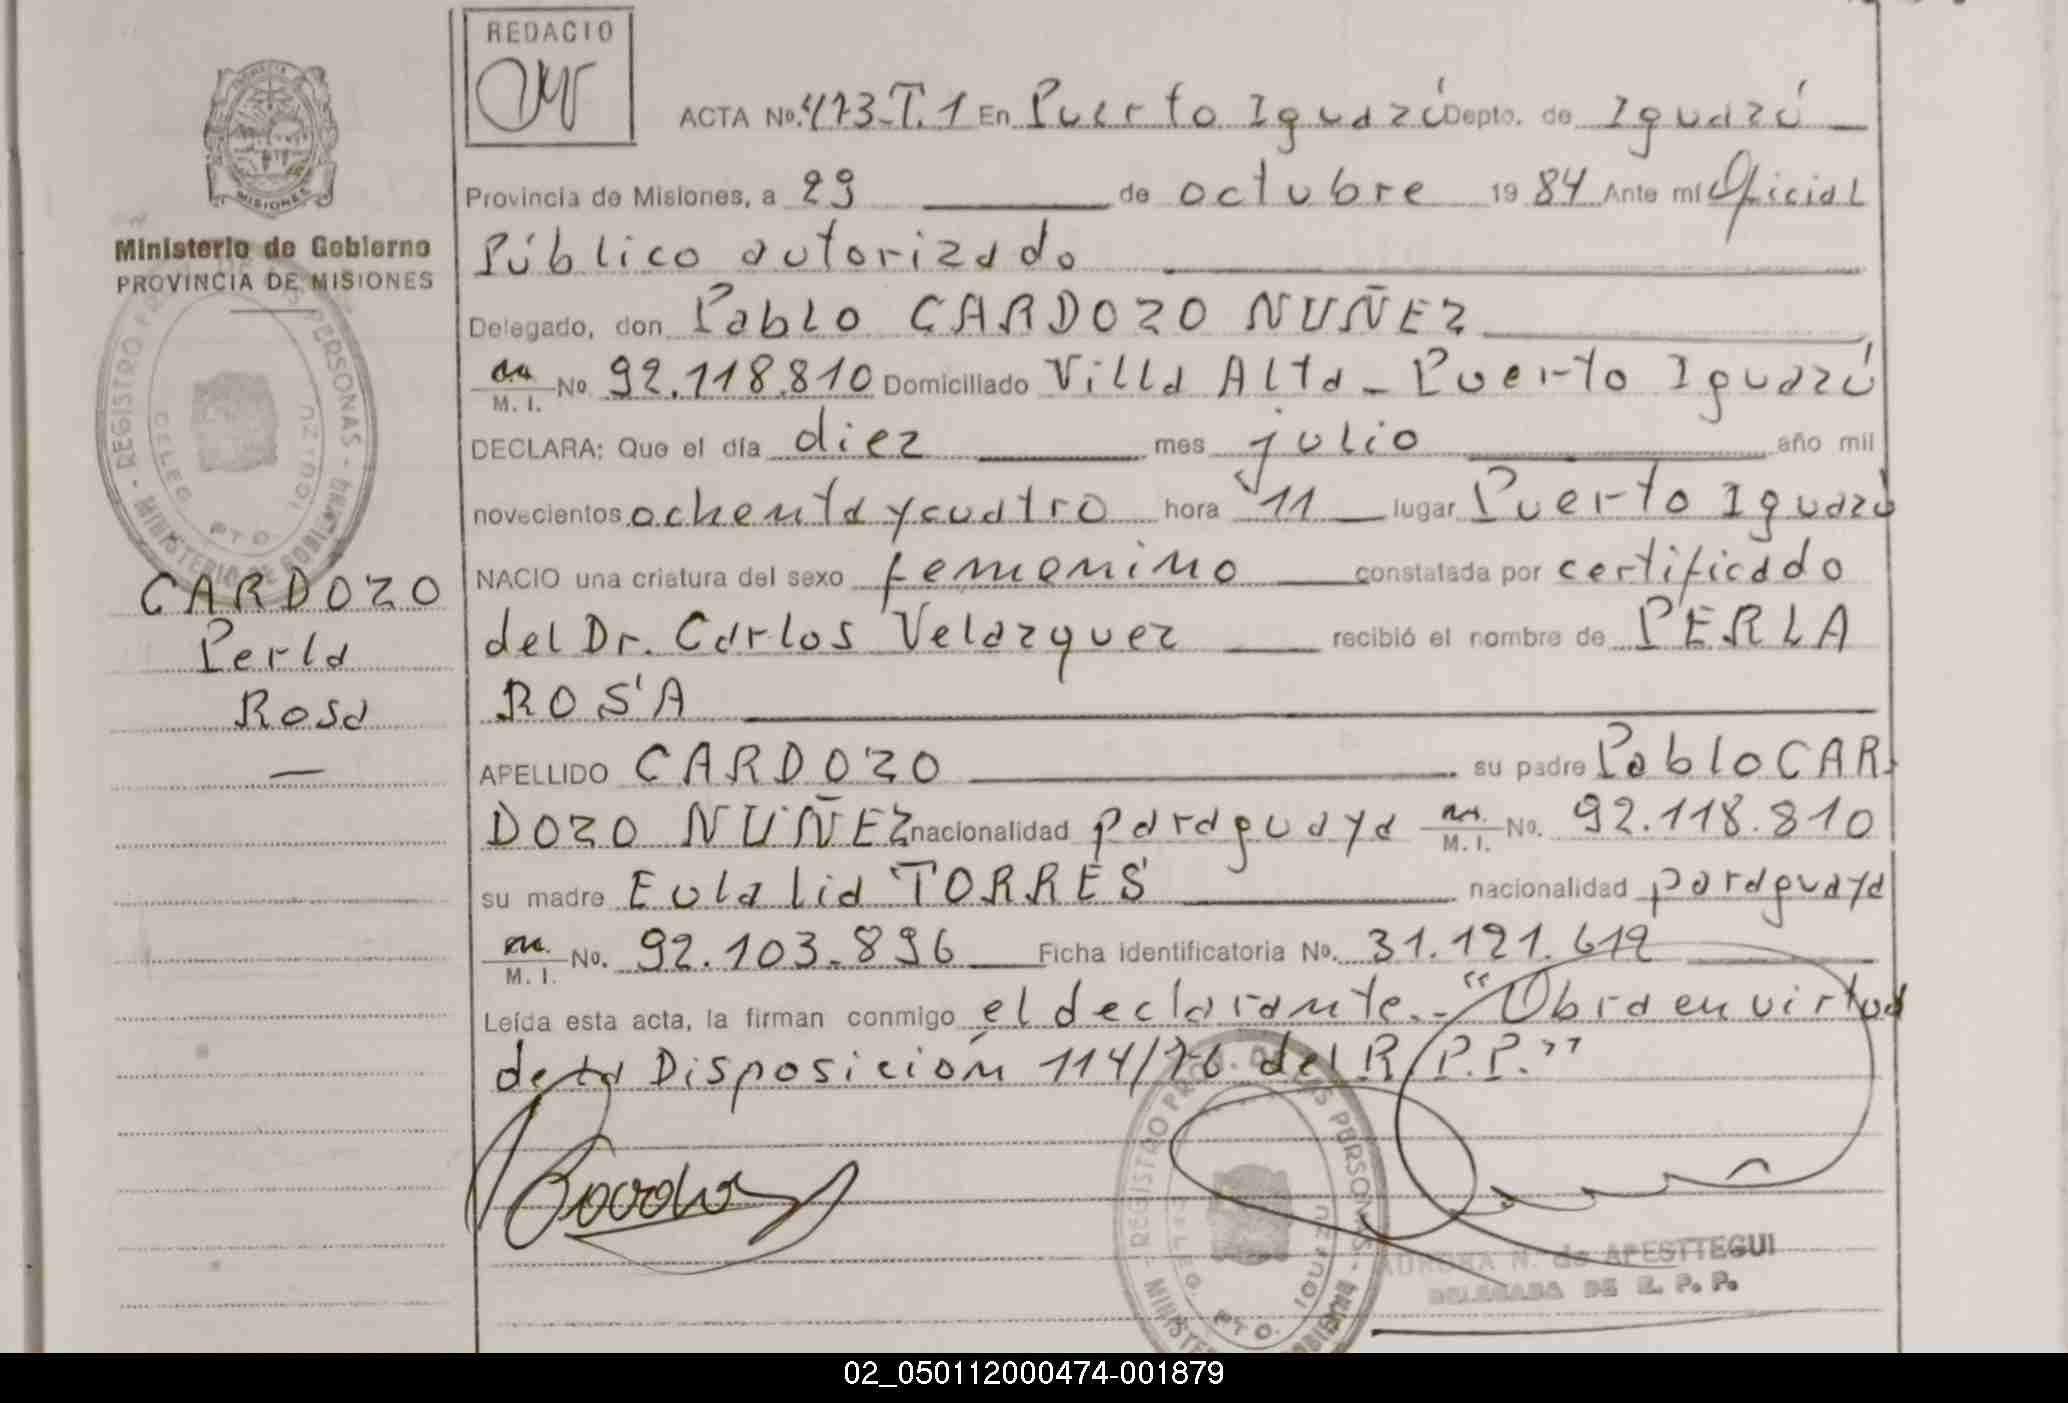 REDACIO
ACTA No. 473-T.1 En Puerto Iguazú Depto. de Iguazú
Provincia de Misiones, a 29 de octubre 1984 Ante mí Oficial
Público autorizado
Delegado, don Pablo CARDOZO NUÑEZ
M. I. No. 92.118.810 Domiciliado Villa Alta - Puerto Iguazú
DECLARA: Que el día diez mes julio año mil
novecientos ochenta y cuatro hora 11 lugar Puerto Iguazú
NACIO una criatura del sexo femenino constatada por certificado
del Dr. Carlos Velazquez recibió el nombre de PERLA
ROSA
APELLIDO CARDOZO su padre Pablo CAR
DOZO NUÑEZ nacionalidad paraguaya M. I. No. 92.118.810
su madre Eulalia TORRES nacionalidad paraguaya
M. I. No. 92.103.896 Ficha identificatoria No. 31.121.612
Leída esta acta, la firman conmigo el declarante.- "Obra en virtud
de la Disposición 114/76 del R.P.P."
AURORA N. de APESTTEGUI
DELEGADA DE R. P. P.
REGISTRO PROV. DE LAS PERSONAS - MINISTERIO DE GOBIERNO
DELEG. PTO. IGUAZU
MISIONES
Ministerio de Gobierno
PROVINCIA DE MISIONES
CARDOZO
Perla
Rosa
02_050112000474-001879